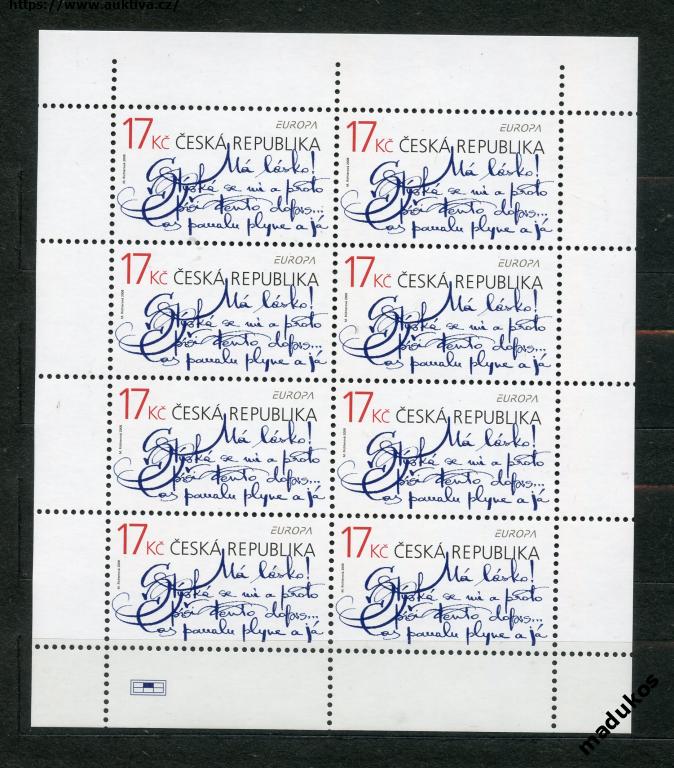 https://www.auktiva.cz/
EUROPA EUROPA
17Kč ČESKÁ REPUBLIKA 17Kč ČESKÁ REPUBLIKA
Má lásko! Má lásko!
Stýská se mi a proto Stýská se mi a proto
píši tento dopis... píši tento dopis...
čas pomalu plyne a já čas pomalu plyne a já
EUROPA EUROPA
17Kč ČESKÁ REPUBLIKA 17Kč ČESKÁ REPUBLIKA
Má lásko! Má lásko!
Stýská se mi a proto Stýská se mi a proto
píši tento dopis... píši tento dopis...
čas pomalu plyne a já čas pomalu plyne a já
EUROPA EUROPA
17Kč ČESKÁ REPUBLIKA 17Kč ČESKÁ REPUBLIKA
Má lásko! Má lásko!
Stýská se mi a proto Stýská se mi a proto
píši tento dopis... píši tento dopis...
čas pomalu plyne a já čas pomalu plyne a já
EUROPA EUROPA
17Kč ČESKÁ REPUBLIKA 17Kč ČESKÁ REPUBLIKA
Má lásko! Má lásko!
Stýská se mi a proto Stýská se mi a proto
píši tento dopis... píši tento dopis...
čas pomalu plyne a já čas pomalu plyne a já
madukos